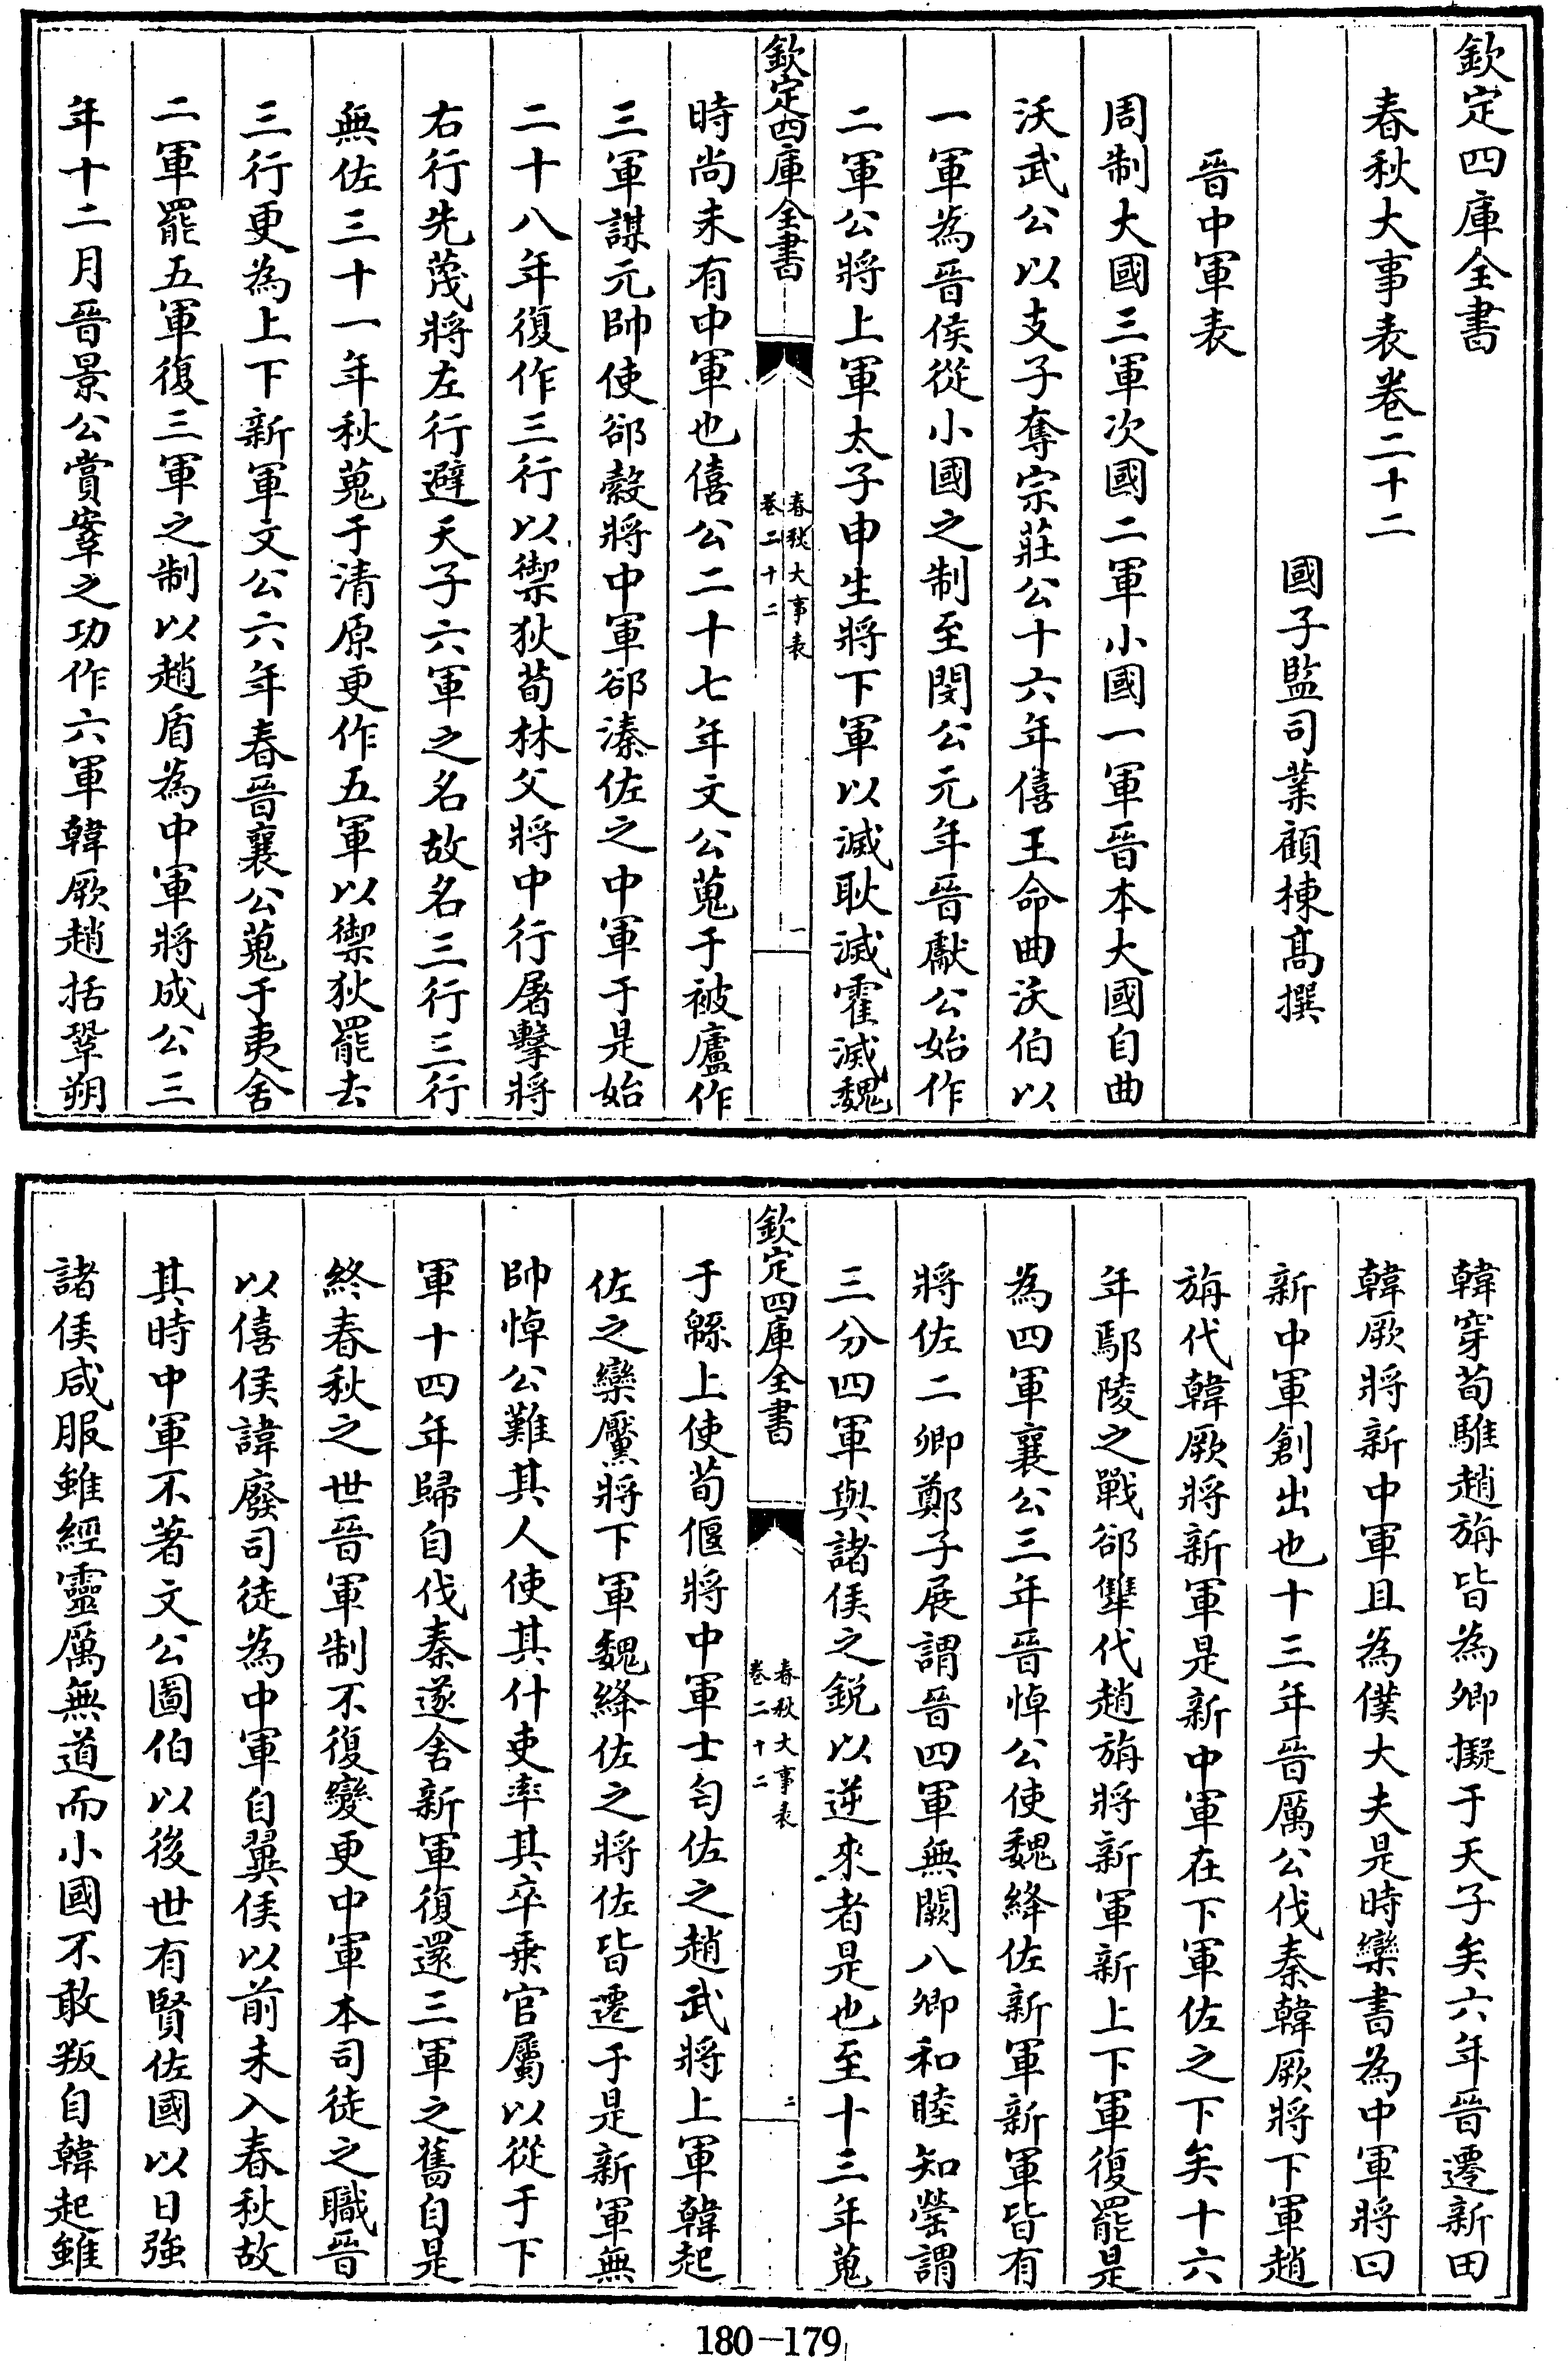 欽定四庫全書
春秋大事表卷二十二
國子監司業顧棟髙撰
晉中軍表
周制大國三軍次國二軍小國一軍晉本大國自曲
沃武公以支子奪宗莊公十六年僖王命曲沃伯以
一軍為晉侯從小國之制至閔公元年晉獻公始作
二軍公將上軍太子申生將下軍以滅耿滅霍滅魏
欽定四庫全書
春秋大事表
卷二十二
一
時尚未有中軍也僖公二十七年文公蒐于被廬作
三軍謀元帥使郤縠將中軍郤溱佐之中軍于是始
二十八年復作三行以禦狄荀林父將中行屠擊將
右行先蔑將左行避天子六軍之名故名三行三行
無佐三十一年秋蒐于清原更作五軍以禦狄罷去
三行更為上下新軍文公六年春晉襄公蒐于夷舍
二軍罷五軍復三軍之制以趙盾為中軍將成公三
年十二月晉景公賞鞌之功作六軍韓厥趙括鞏朔
韓穿荀騅趙旃皆為卿擬于天子矣六年晉遷新田
韓厥將新中軍且為僕大夫是時欒書為中軍將曰
新中軍創出也十三年晉厲公伐秦韓厥將下軍趙
旃代韓厥將新軍是新中軍在下軍佐之下矣十六
年鄢陵之戰郤犨代趙旃將新軍新上下軍復罷是
為四軍襄公三年晉悼公使魏絳佐新軍新軍皆有
將佐二卿鄭子展謂晉四軍無闕八卿和睦知罃謂
三分四軍與諸侯之銳以逆來者是也至十三年蒐
欽定四庫全書
春秋大事表
卷二十二
二
于緜上使荀偃將中軍士匄佐之趙武將上軍韓起
佐之欒黶將下軍魏絳佐之將佐皆遷于是新軍無
帥悼公難其人使其什吏率其卒乗官屬以從于下
軍十四年歸自伐秦遂舍新軍復還三軍之舊自是
終春秋之世晉軍制不復變更中軍本司徒之職晉
以僖侯諱廢司徒為中軍自翼侯以前未入春秋故
其時中軍不著文公圖伯以後世有賢佐國以日強
諸侯咸服雖經靈厲無道而小國不敢叛自韓起雖
180-179